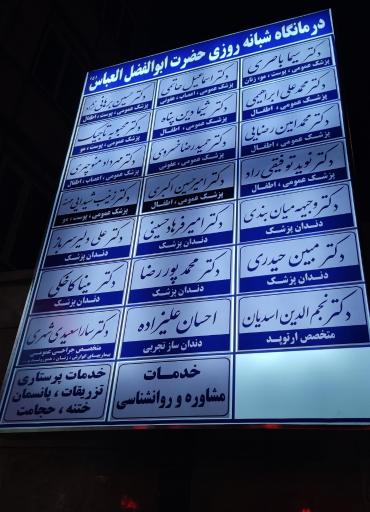 درمانگاه شبانه روزی حضرت ابوالفضل العباس (ع)
دکتر سیما باصری
پزشک عمومی ، پوست ، مو، زنان
دکتر اسماعیل حاتمی
پزشک عمومی ، اعصاب ، عفونی
دکتر حسین برهانی نژاد
پزشک عمومی ، پوست ، اطفال
دکتر محمد علی ابراهیمی
پزشک عمومی ، اطفال
دکتر شیما دین پناه
پزشک عمومی ، اطفال
دکتر محبوبه تاجیک
پزشک عمومی ، پوست ، مو
دکتر محمد امین رضایی
پزشک عمومی ، اطفال
دکتر حمید رضا خسروی
پزشک عمومی ، عفونی
دکتر مهرداد منوچهری
پزشک عمومی ، اعصاب ، اطفال
دکتر نوید توفیقی راد
پزشک عمومی ، اطفال
دکتر امیرحسین اکبری
پزشک عمومی ، اطفال
دکتر زینب
پزشک عمومی ، پوست ، مو
دکتر وجیهه میان بندی
دندان پزشک
دکتر امیر فرهاد حسینی
دندان پزشک
دکتر علی دلیر سرباز
دندان پزشک
دکتر مبین حیدری
دندان پزشک
دکتر محمد پور رضا
دندان پزشک
دکتر مینا کاخکی
دندان پزشک
دکتر نجم الدین اسدیان
متخصص ارتوپد
احسان علیزاده
دندان ساز تجربی
دکتر سارا سعیدی
متخصص جراحی عمومی
خدمات
مشاوره و روانشناسی
خدمات پرستاری
تزریقات ، پانسمان
ختنه ، حجامت